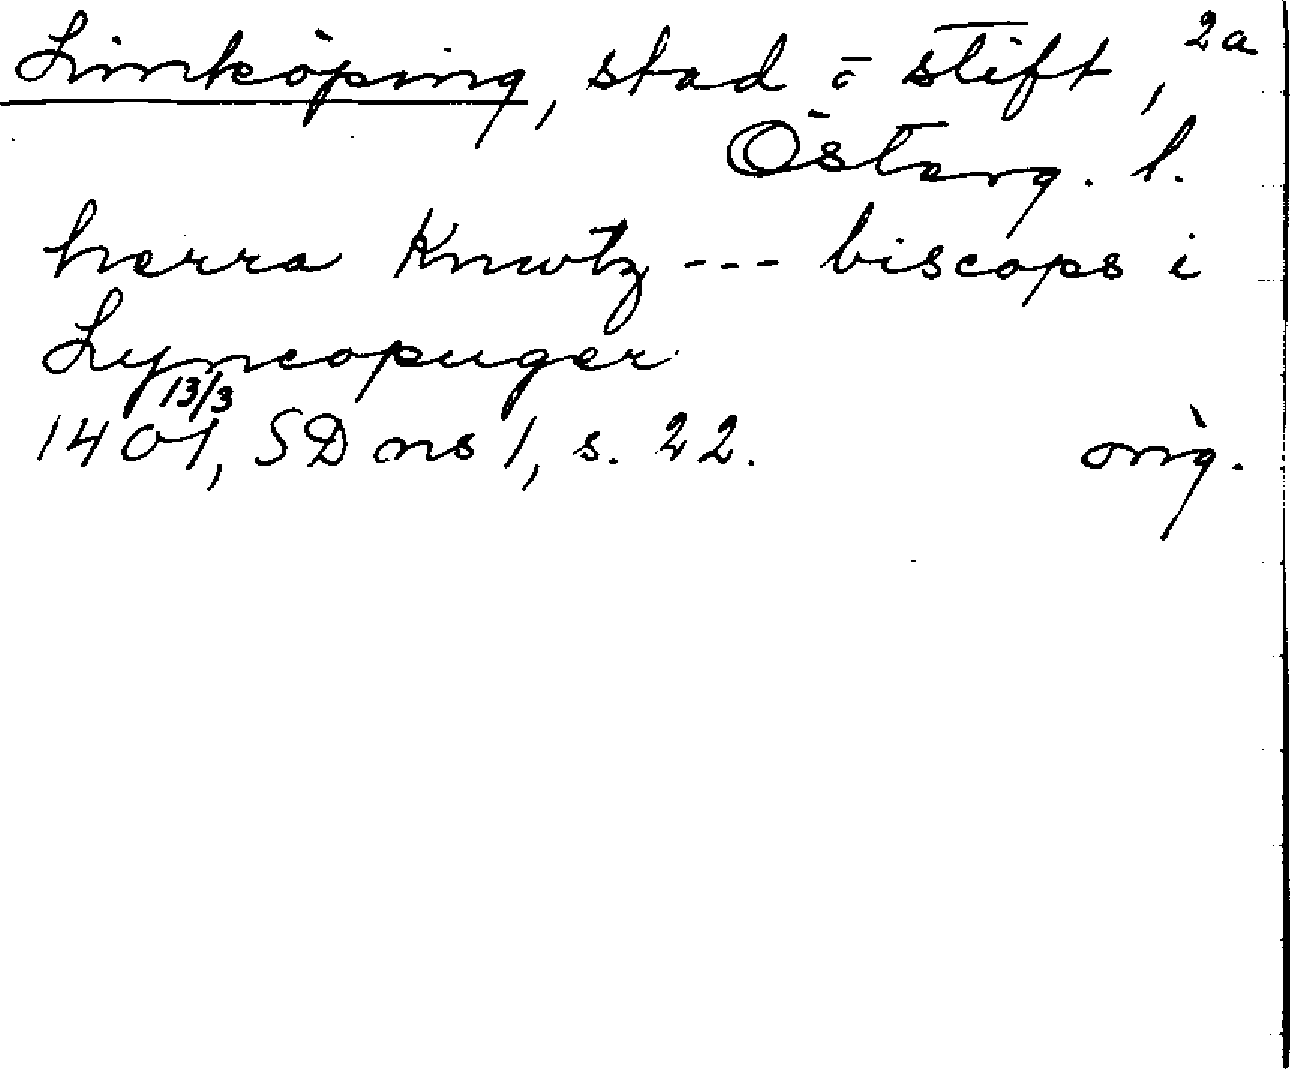 Linköping, stad o stift, 2a
Österg. l.
herra Knwtz --- biscops i
Lyncopuger
13/3
1401, SD ns 1, s. 22. orig.